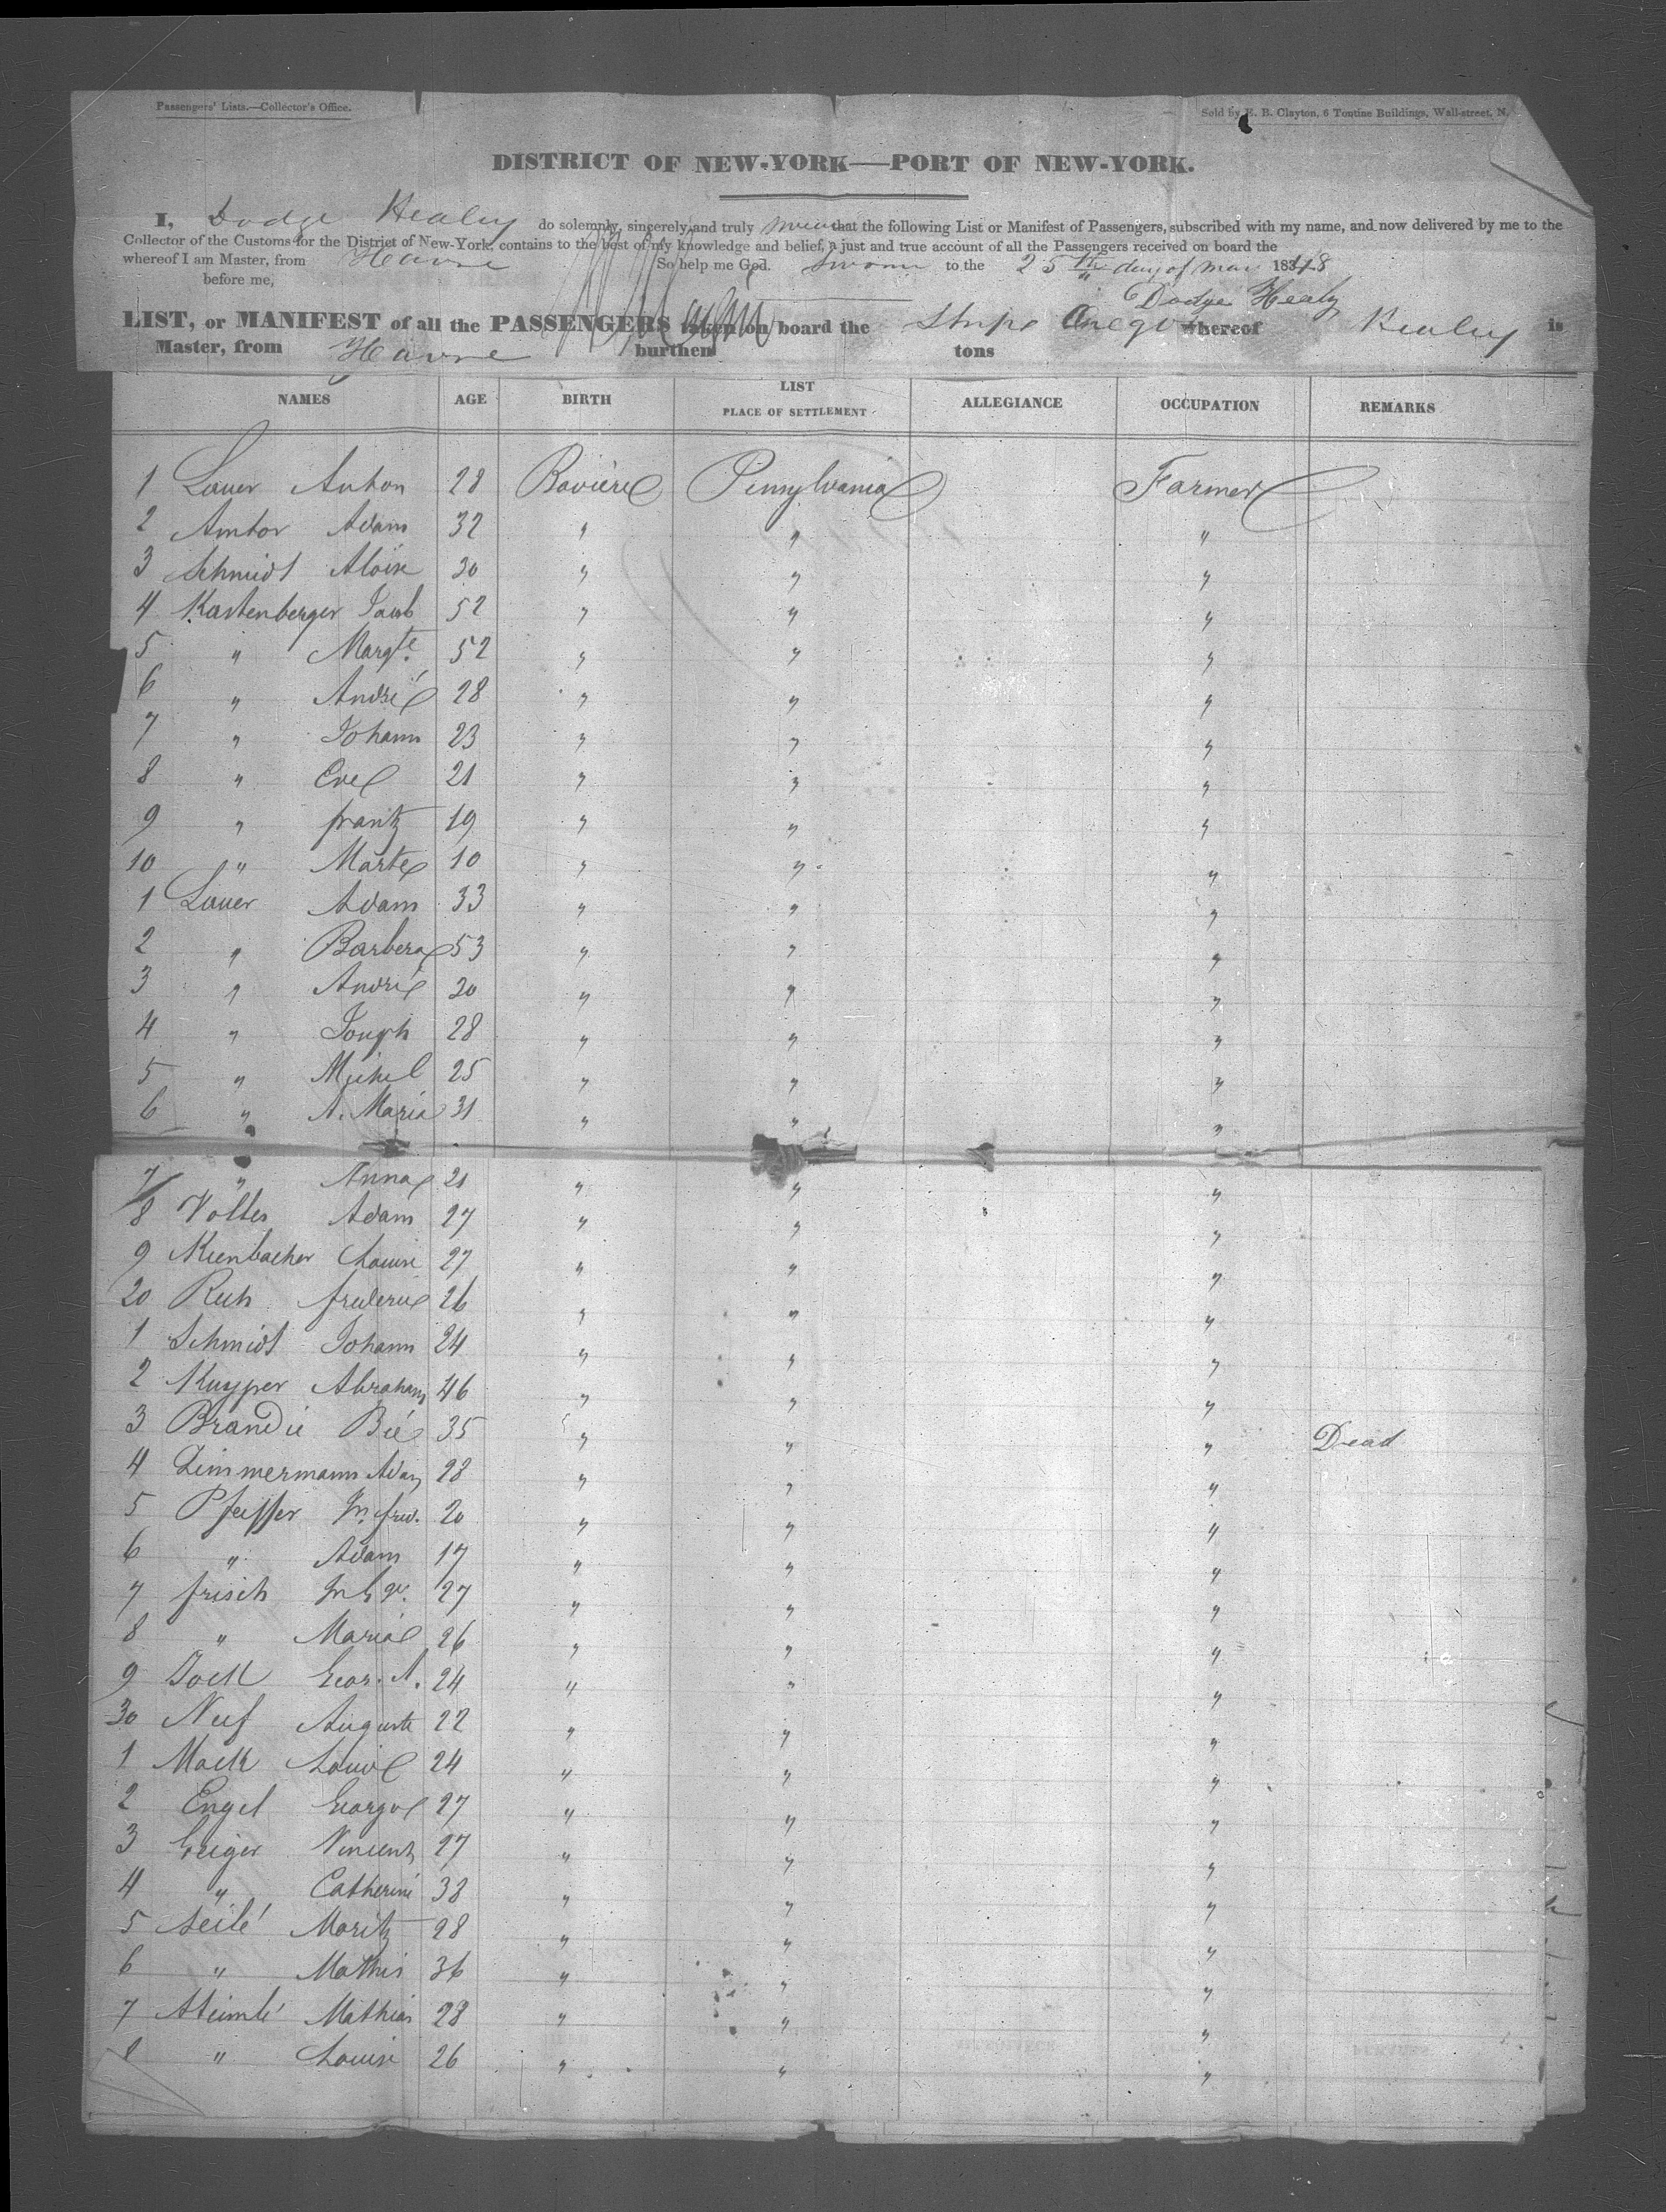 Passengers' Lists.—Collector's Office.
Sold by E. B. Clayton, 6 Tontine Buildings, Wall-street, N.
DISTRICT OF NEW-YORK—PORT OF NEW-YORK.
I, Dodge Healey do solemnly, sincerely and truly swear that the following List or Manifest of Passengers, subscribed with my name, and now delivered by me to the
Collector of the Customs for the District of New-York, contains to the best of my knowledge and belief, a just and true account of all the Passengers received on board the
whereof I am Master, from Havre So help me God. Sworn to the 25th day of 1848
before me,
Dodge Healy
LIST, or MANIFEST of all the PASSENGERS taken on board the Ship whereof is
Master, from Havre burthen tons
NAMES AGE BIRTH LIST PLACE OF SETTLEMENT ALLEGIANCE OCCUPATION REMARKS
1 Lauer Anton 28 Baviere Pensylvania Farmer
2 Amtor Adam 32 " " "
3 Schmidt Aloise 30 " " "
4 Kastenberger Jacob 52 " " "
5 " Margte. 52 " " "
6 " André 28 " " "
7 " Johann 23 " " "
8 " Eve 21 " " "
9 " frantz 19 " " "
10 " Marte 10 " " "
1 Lauer Adam 33 " " "
2 " Barbera 53 " " "
3 " André 20 " " "
4 " Joseph 28 " " "
5 " Michel 25 " " "
6 " A. Maria 31 " " "
7 " Anna 21 " " "
8 Volter Adam 27 " " "
9 Kienbacher Louise 27 " " "
20 Ruh frederic 26 " " "
1 Schmidt Johann 24 " " "
2 Kuyper Abraham 46 " " "
3 Brandie 35 " " " Dead
4 Zimmermann Adam 28 " " "
5 Pfeiffer fred. 20 " " "
6 " Adam 17 " " "
7 frisch 27 " " "
8 " Maria 26 " " "
9 Geor. A. 24 " " "
30 Neef Auguste 22 " " "
1 Mack Louis 24 " " "
2 Engel George 27 " " "
3 Geiger Vincent 27 " " "
4 " Catherine 38 " " "
5 Seilé Moritz 28 " " "
6 " Mathis 36 " " "
7 Steimlé Mathias 28 " " "
8 " Louise 26 " " "